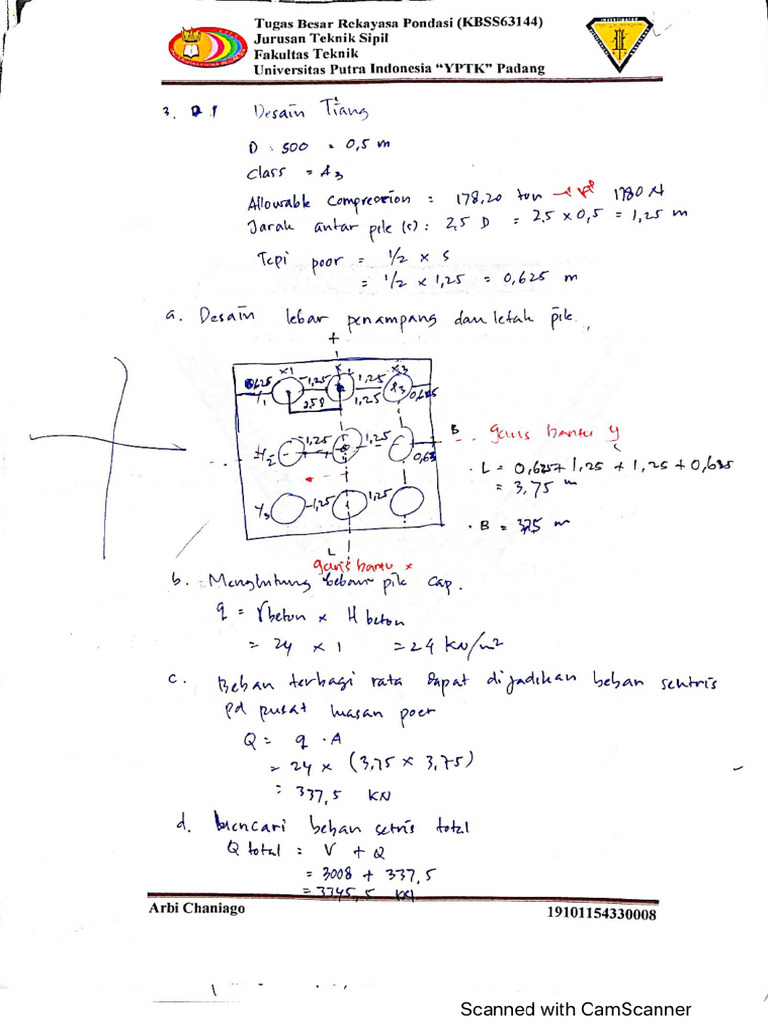 Tugas Besar Rekayasa Pondasi (KBSS63144)
Jurusan Teknik Sipil
Fakultas Teknik
Universitas Putra Indonesia “YPTK” Padang
3. 2.1 Desain Tiang
D : 500 = 0,5 m
Class = A3
Allowable Compression : 178,20 ton → 1780
Jarak antar pile (s) : 2,5 D = 2,5 x 0,5 = 1,25 m
Tepi poor = 1/2 x s
= 1/2 x 1,25 = 0,625 m
a. Desain lebar penampang dan letak pile.
+
X1 X3
0,625 -1,25 1,25 0,625
Y1 2,5D 1,25
Y2 -1,25 1,25 0,63
B garis bantu y
Y3 -1,25 1,25
. L = 0,625 + 1,25 + 1,25 + 0,625
= 3,75 m
. B = 3,75 m
L
garis bantu x
b. Menghitung beban pile cap.
q = γbeton x H beton
= 24 x 1 = 24 kN/m2
c. Beban terbagi rata dapat dijadikan beban sentris
pd pusat luasan poer
Q = q . A
= 24 x (3,75 x 3,75)
= 337,5 KN
d. Mencari beban setris total
Q total = V + Q
= 3008 + 337,5
= 3345,5 KN
Arbi Chaniago 19101154330008
Scanned with CamScanner